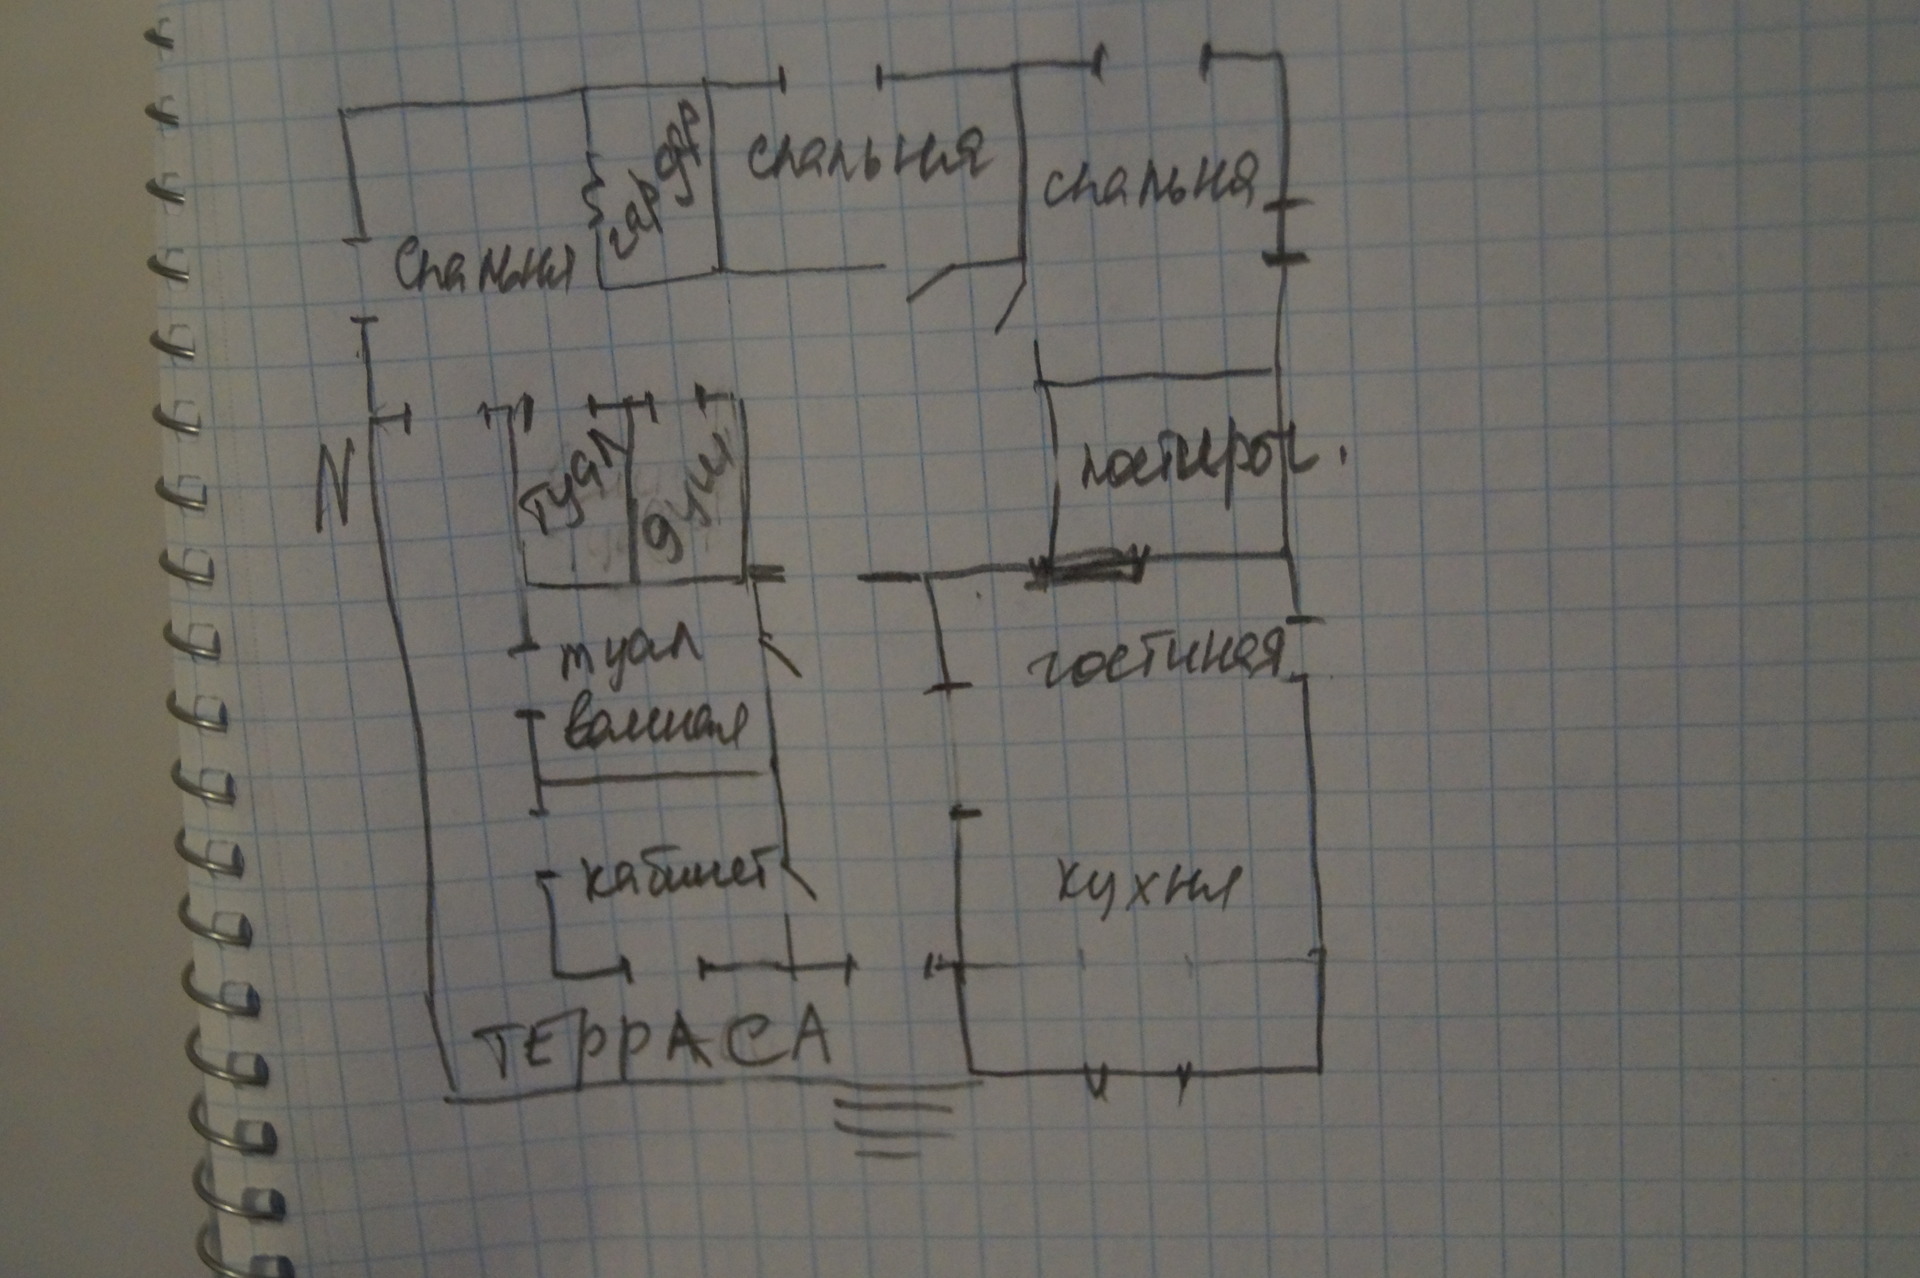 спальня
спальня
гардер
спальня
N
туал
душ
постироч.
туал
ванная
гостиная
кабинет
кухня
ТЕРРАСА